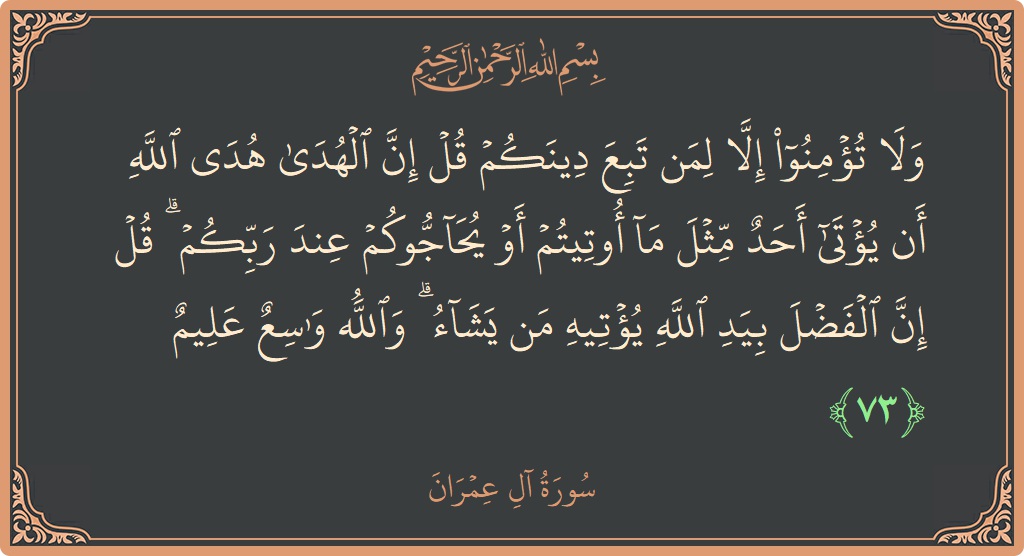 بِسْمِ اللَّهِ الرَّحْمَٰنِ الرَّحِيمِ
وَلَا تُؤْمِنُوٓا۟ إِلَّا لِمَن تَبِعَ دِينَكُمْ قُلْ إِنَّ ٱلْهُدَىٰ هُدَى ٱللَّهِ
أَن يُؤْتَىٰٓ أَحَدٌ مِّثْلَ مَآ أُوتِيتُمْ أَوْ يُحَآجُّوكُمْ عِندَ رَبِّكُمْ ۗ قُلْ
إِنَّ ٱلْفَضْلَ بِيَدِ ٱللَّهِ يُؤْتِيهِ مَن يَشَآءُ ۗ وَٱللَّهُ وَٰسِعٌ عَلِيمٌ
﴿٧٣﴾
سُورَةُ آلِ عِمْرَانَ